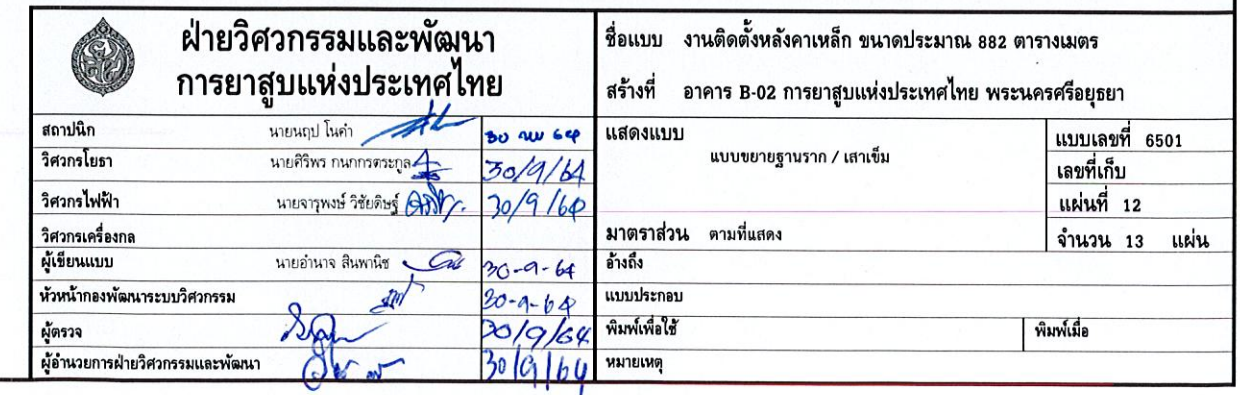 ฝ่ายวิศวกรรมและพัฒนา
การยาสูบแห่งประเทศไทย
สถาปนิก นายนฤป โนคำ
วิศวกรโยธา นายศิริพร กนกกรตระกูล 30/9/64
วิศวกรไฟฟ้า นายจารุพงษ์ วิชัยดิษฐ์ 30/9/64
วิศวกรเครื่องกล
ผู้เขียนแบบ นายอำนาจ สินพานิช 30-9-64
หัวหน้ากองพัฒนาระบบวิศวกรรม 30-9-64
ผู้ตรวจ 30/9/64
ผู้อำนวยการฝ่ายวิศวกรรมและพัฒนา 30/9/64
ชื่อแบบ งานติดตั้งหลังคาเหล็ก ขนาดประมาณ 882 ตารางเมตร
สร้างที่ อาคาร B-02 การยาสูบแห่งประเทศไทย พระนครศรีอยุธยา
แสดงแบบ
แบบขยายฐานราก / เสาเข็ม
มาตราส่วน ตามที่แสดง
แบบเลขที่ 6501
เลขที่เก็บ
แผ่นที่ 12
จำนวน 13 แผ่น
อ้างถึง
แบบประกอบ
พิมพ์เพื่อใช้ พิมพ์เมื่อ
หมายเหตุ